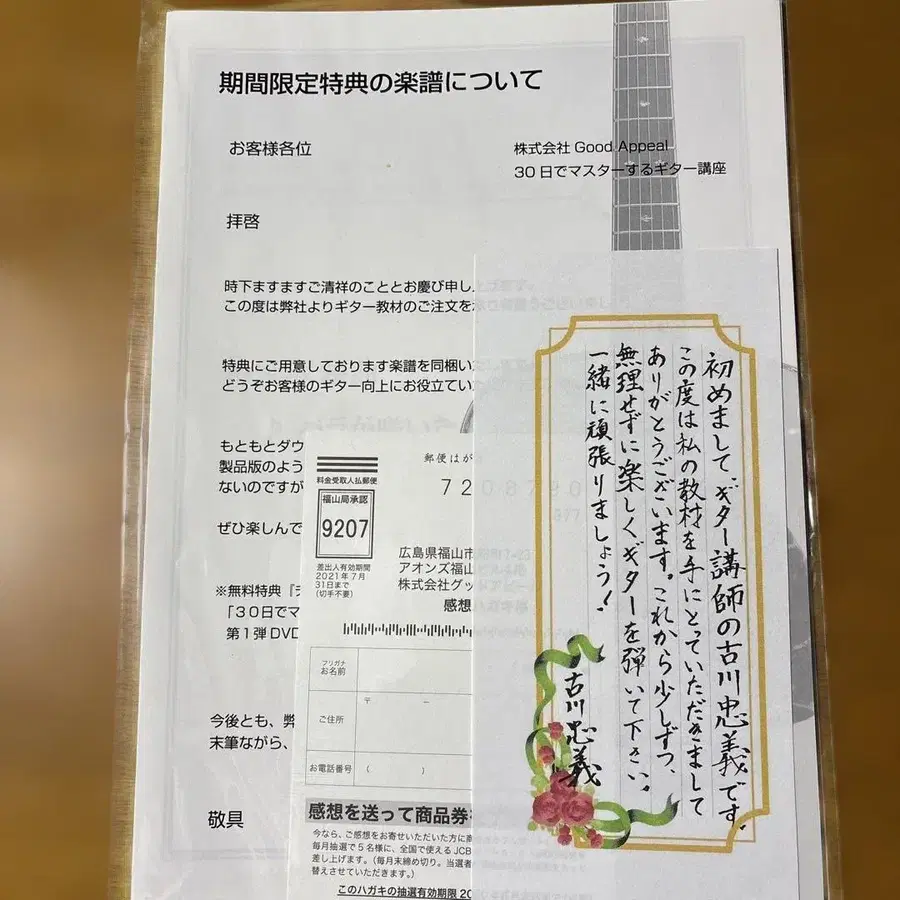 期間限定特典の楽譜について
お客様各位
株式会社 Good Appeal
30日でマスターするギター講座
拝啓
時下ますますご清祥のこととお慶び申し
この度は弊社よりギター教材のご注文を
特典にご用意しております楽譜を同梱い
どうぞお客様のギター向上にお役立てい
もともとダウ
製品版のよう
ないのですが
ぜひ楽しんで
※無料特典『
「30日でマ
第１弾DVD
今後とも、弊
末筆ながら、
敬具
郵便はが
料金受取人払郵便
福山局承認
9207
差出人有効期間
2021年7月
31日まで
(切手不要)
7208790
広島県福山市
アオンズ福山
株式会社グッドアピール
感想
フリガナ
お名前
ご住所
〒 －
お電話番号
( )
感想を送って商品券
今なら、ご感想をお寄せいただいた方に
毎月抽選で5名様に、全国で使えるJCB
差し上げます。(毎月末締め切り。当選者
替えさせていただきます。)
このハガキの抽選有効期限 20
初めまして、ギター講師の古川忠義です。
この度は私の教材を手にとっていただきまして
ありがとうございます。これから少しずつ、
無理せずに楽しくギターを弾いて下さい。
一緒に頑張りましょう!
古川忠義